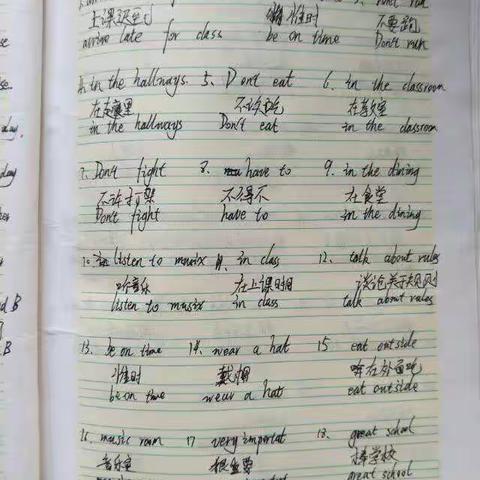 上课迟到 准时 不要跑
arrive late for class be on time Don't run
4. in the hallways. 5. Dont eat 6. in the classroom
在走廊里 不许吃 在教室
in the hallways Don't eat in the classroom
7. Don't fight 8. have to 9. in the dining
不许打架 不得不 在食堂
Don't fight have to in the dining
10. listen to musix 11. in class 12. talk about rules
听音乐 在上课时间 谈论关于规则
listen to musix in class talk about rules
13. be on time 14. wear a hat 15 eat outside
准时 戴帽 在外面吃
be on time wear a hat eat outside
16. music room 17 very importat 18. great school
音乐室 很重要 棒学校
great school